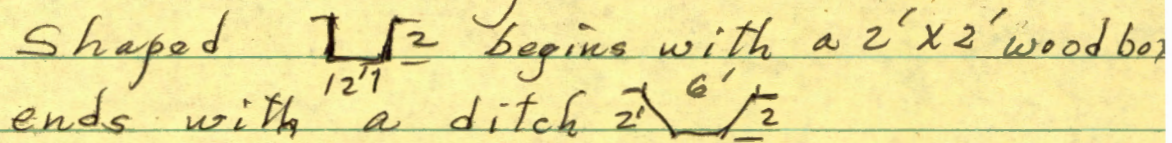 Shaped 2 12" begins with a 2' x 2' wood box
ends with a ditch 2' 6' 2